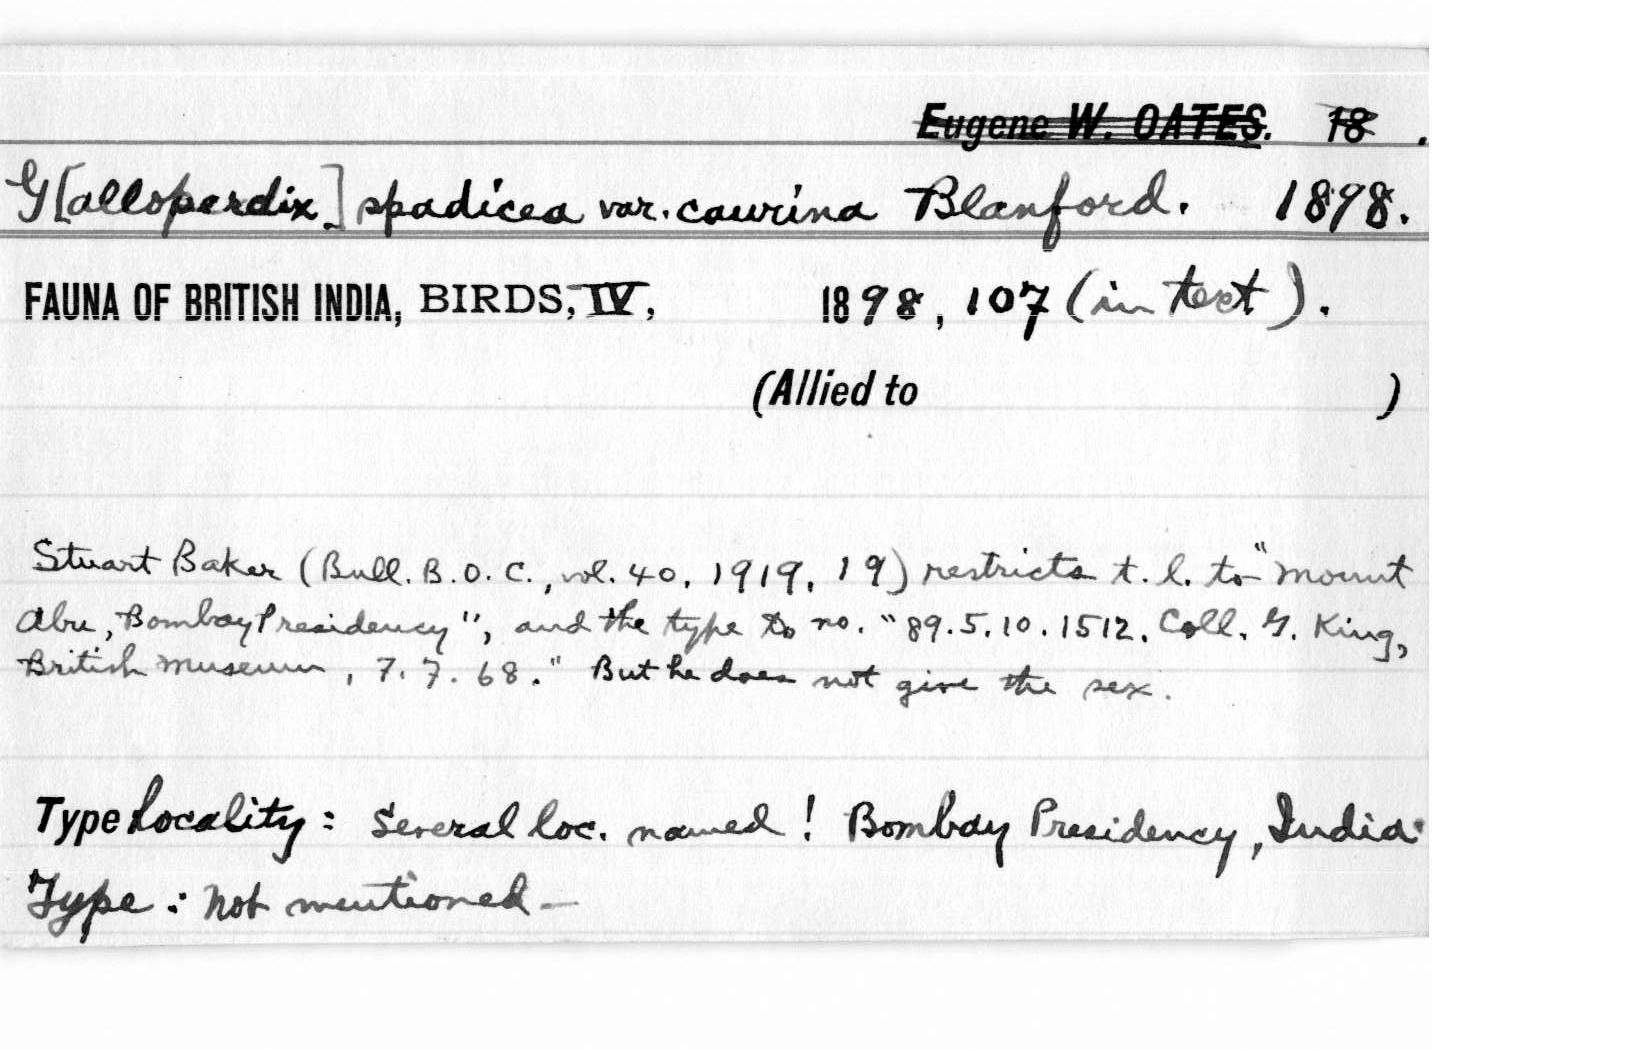 Eugene W. OATES. 18 .
G[alloperdix] spadicea var. caurina Blanford. 1898.
FAUNA OF BRITISH INDIA, BIRDS, IV, 1898, 107 (in text).
(Allied to )
Stuart Baker (Bull. B.O.C., vol. 40, 1919, 19) restricts t. l. to "Mount
Abu, Bombay Presidency", and the type to no. "89.5.10.1512. Coll. G. King,
British Museum, 7.7.68." But he does not give the sex.
Type locality: Several loc. named! Bombay Presidency, India.
Type: Not mentioned—